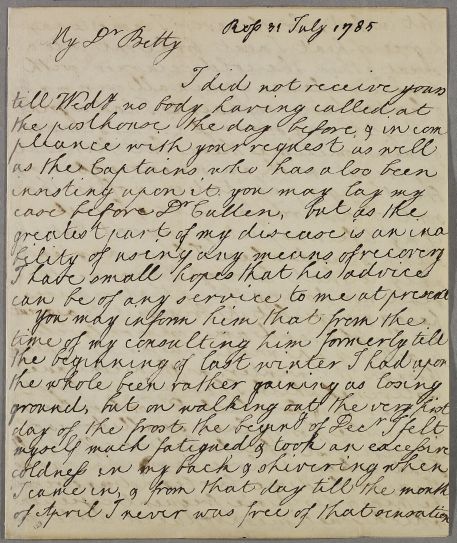 Ross 31 July 1785
My Dr Betty
I did not receive yours
till Wedy no body having called at
the posthouse the day before, & in com
pliance with your request as well
as the Captains who has also been
insisting upon it you may lay my
case before Dr Cullen, but as the
greatest part of my disease is an ina
bility of using any means of recovery
I have small hopes that his advice
can be of any service to me at present
You may inform him that from the
time of my consulting him formerly till
the beginning of last winter I had upon
the whole been rather gaining as losing
ground, but on walking out the very first
day of the frost the beging of Decr I felt
myself much fatigued & took an excessive
coldness in my back & shivering when
I came in, & from that day till the month
of April I never was free of that sensation